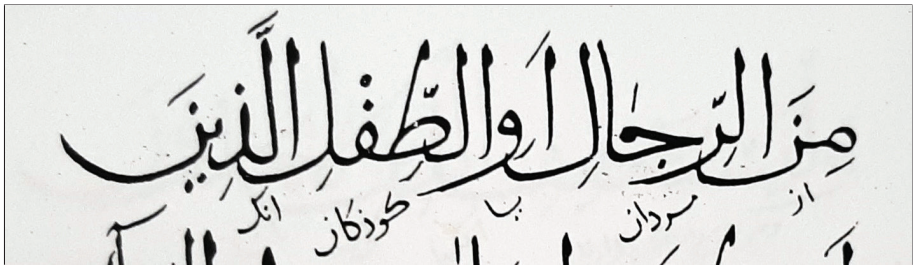 مِنَ الرِّجَالِ اَوِ الطِّفْلِ الَّذِينَ
از مردان یا کوذکان انک